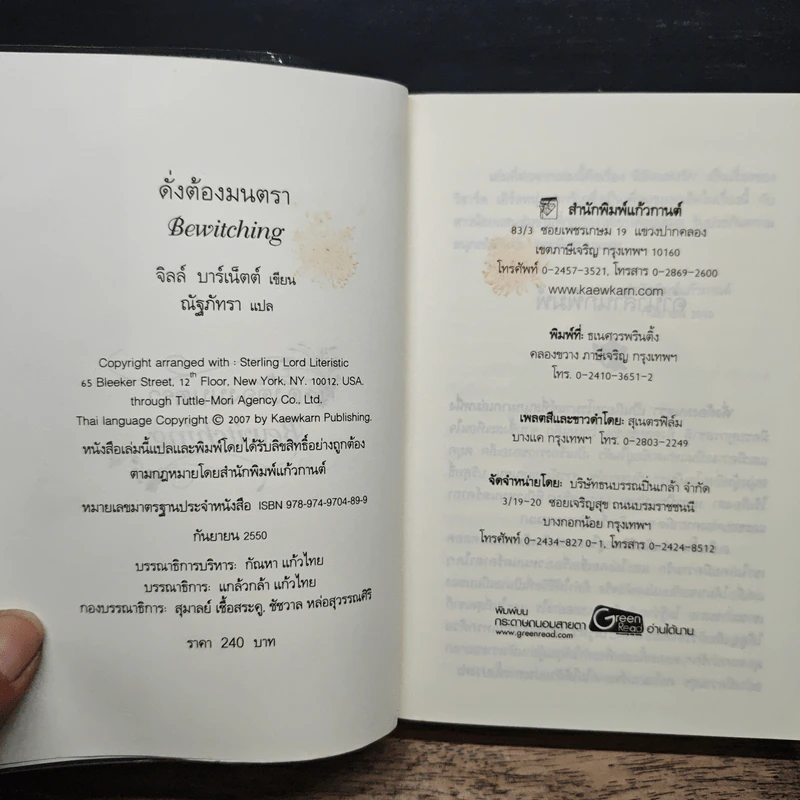 ดั่งต้องมนตรา
Bewitching
จิลล์ บาร์เน็ตต์ เขียน
ณัฐภัทรา แปล
Copyright arranged with : Sterling Lord Literistic
65 Bleeker Street, 12th Floor, New York, NY. 10012, USA.
through Tuttle-Mori Agency Co., Ltd.
Thai language Copyright © 2007 by Kaewkarn Publishing.
หนังสือเล่มนี้แปลและพิมพ์โดยได้รับลิขสิทธิ์อย่างถูกต้อง
ตามกฎหมายโดยสำนักพิมพ์แก้วกานต์
หมายเลขมาตรฐานประจำหนังสือ ISBN 978-974-9704-89-9
กันยายน 2550
บรรณาธิการบริหาร: กัณหา แก้วไทย
บรรณาธิการ: แกล้วกล้า แก้วไทย
กองบรรณาธิการ: สุมาลย์ เชื้อสระคู, ชัชวาล หล่อสุวรรณศิริ
ราคา 240 บาท
สำนักพิมพ์แก้วกานต์
83/3 ซอยเพชรเกษม 19 แขวงปากคลอง
เขตภาษีเจริญ กรุงเทพฯ 10160
โทรศัพท์ 0-2457-3521, โทรสาร 0-2869-2600
www.kaewkarn.com
พิมพ์ที่: ธเนศวรพรินติ้ง
คลองขวาง ภาษีเจริญ กรุงเทพฯ
โทร. 0-2410-3651-2
เพลตสีและขาวดำโดย: สุเนตรฟิล์ม
บางแค กรุงเทพฯ โทร. 0-2803-2249
จัดจำหน่ายโดย: บริษัทธนบรรณปิ่นเกล้า จำกัด
3/19-20 ซอยเจริญสุข ถนนบรมราชชนนี
บางกอกน้อย กรุงเทพฯ
โทรศัพท์ 0-2434-827 0-1, โทรสาร 0-2424-8512
พิมพ์บน
กระดาษถนอมสายตา Green Read อ่านได้นาน
www.greenread.com